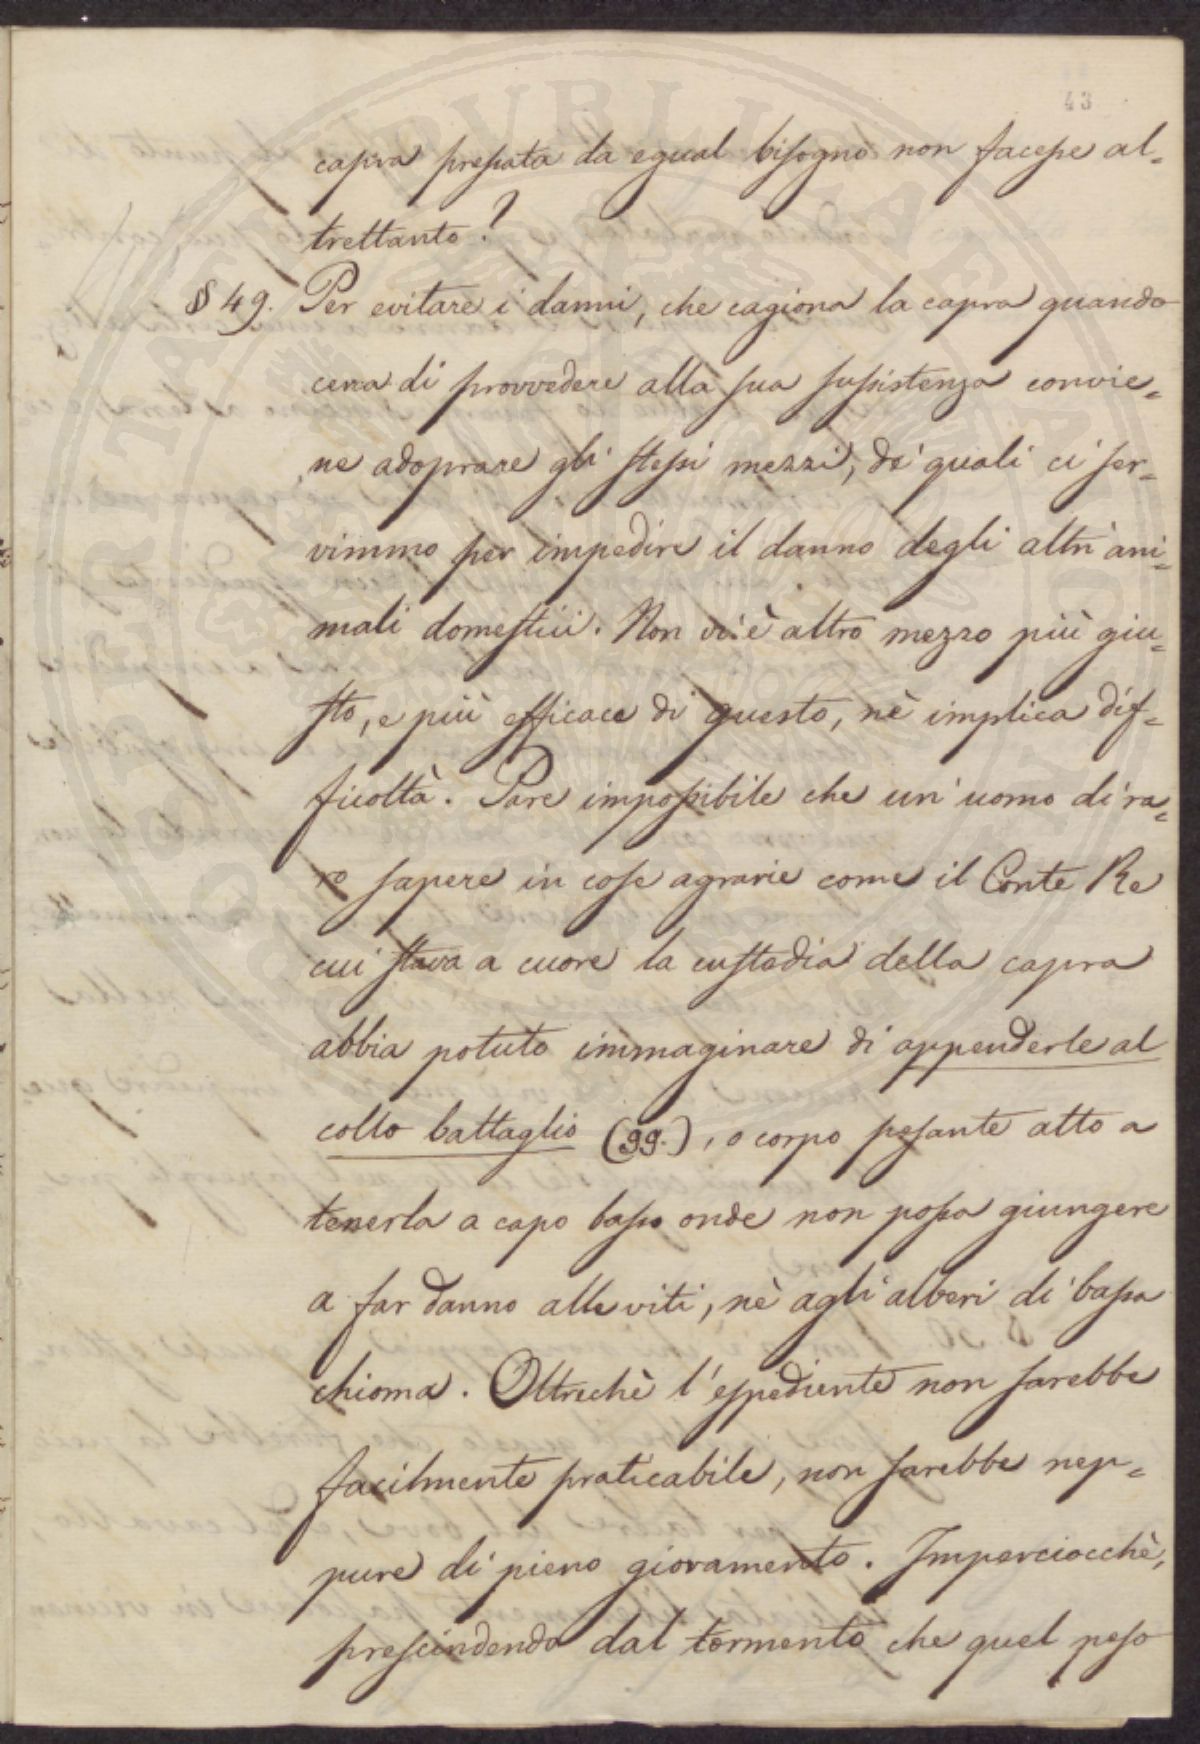 43
capra pressata da egual bisogno non facesse al=
trettanto?
§ 49. Per evitare i danni, che cagiona la capra quando
cerca di provvedere alla sua sussistenza convie=
ne adoprare gli stessi mezzi, de' quali ci ser=
vimmo per impedire il danno degli altri ani=
mali domestici. Non vi è altro mezzo più giu=
sto, e più efficace di questo, nè implica dif=
ficoltà. Pare impossibile che un' uomo di ra=
ro sapere in cose agrarie come il Conte Re
cui stava a cuore la custodia della capra
abbia potuto immaginare di appenderle al
collo battaglio (99.), o corpo pesante atto a
tenerla a capo basso onde non possa giungere
a far danno alle viti, nè agli alberi di bassa
chioma. Oltrechè l'espediente non sarebbe
facilmente praticabile, non sarebbe nep=
pure di pieno giovamento. Imperciocchè,
prescindendo dal tormento che quel peso